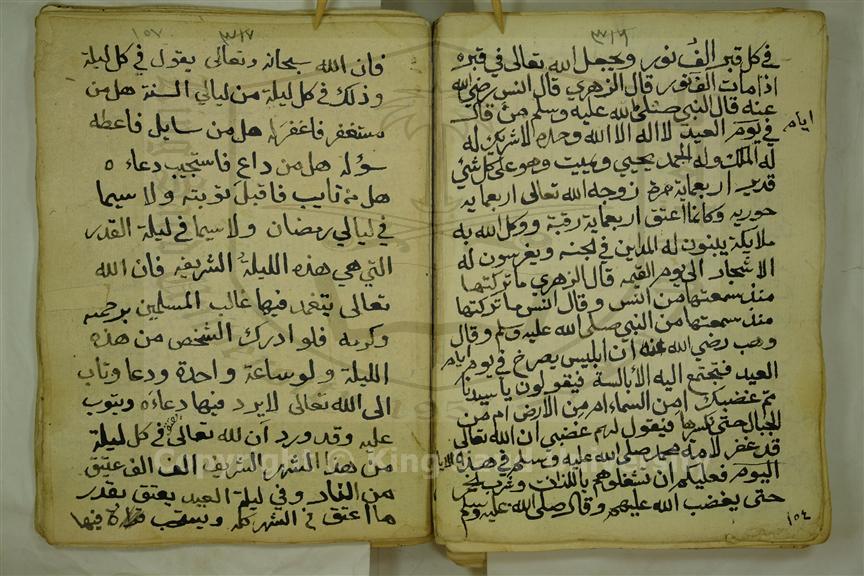 ٣٧٦
في كل قبر الف نور ويجعل الله تعالى في قبره
اذا مات الف نور قال الزهري قال انس رضي الله
عنه قال النبي صلى الله عليه وسلم من قال
في يوم العيد لا اله الا الله وحده لا شريك له
ايام
له الملك وله الحمد يحيي ويميت وهو على كل شئ
قدير اربعماية مرة زوجه الله تعالى اربعماية
حورية وكانما اعتق اربعماية رقبة ووكل الله به
ملايكة يبنون له المداين في الجنه ويغرسون له
الاشجار الى يوم القيمه قال الزهري ما تركتها
منذ سمعتها من انس وقال انس ما تركتها
منذ سمعتها من النبي صلى الله عليه وسلم وقال
وهب رضي الله عنه ان ابليس يصرخ في يوم
ايام
العيد فتجتمع اليه الابالسة فيقولون يا سيدنا
مم غضبك امن السماء ام من الارض ام من
الجبال حتى فيقول لهم غضبي ان الله تعالى
قد غفر لامة محمد صلى الله عليه وسلم في هذه
اليوم فعليكم ان تشغلوهم باللذات وشرب الخمر
حتى يغضب الله عليهم وقال صلى الله عليه وسلم
١٥٤
٣٧٧
١٥٧
فان الله سبحانه وتعالى يقول في كل ليلة
وذلك في كل ليلة من ليالي السنة هل من
مستغفر فاغفر له هل من سايل فاعطه
سؤله هل من داع فاستجيب دعاءه
هل من تايب فاقبل توبته ولا سيما
في ليالي رمضان ولا سيما في ليلة القدر
التي هي هذه الليلة الشريفه فان الله
تعالى يتغمد فيها غالب المسلمين برحمته
وكرمه فلو ادرك الشخص من هذه
الليلة ولو ساعة واحدة ودعا وتاب
الى الله تعالى لا يرد فيها دعاءه ويتوب
عليه وقد ورد ان لله تعالى في كل ليلة
من هذا الشهر الشريف الف الف عتيق
من النار وفي ليلة العيد يعتق بقدر
ما اعتق في الشهر كله ويستحب فيها
Copyright © King Saud University